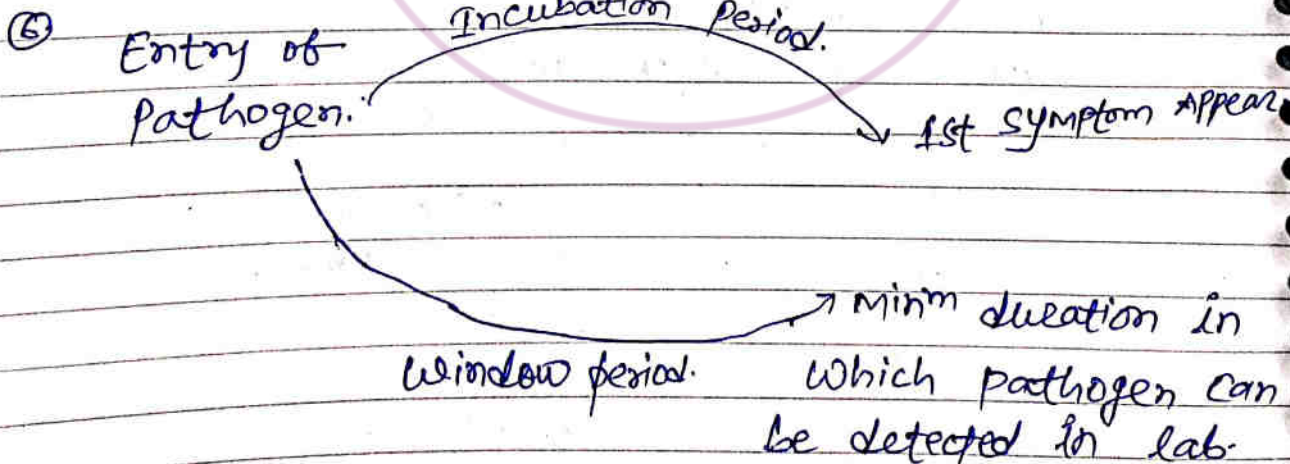 ⑥ Entry of Pathogen.
Incubation Period.
1st Symptom Appear
Window period.
Minm duration in
which pathogen can
be detected in lab.